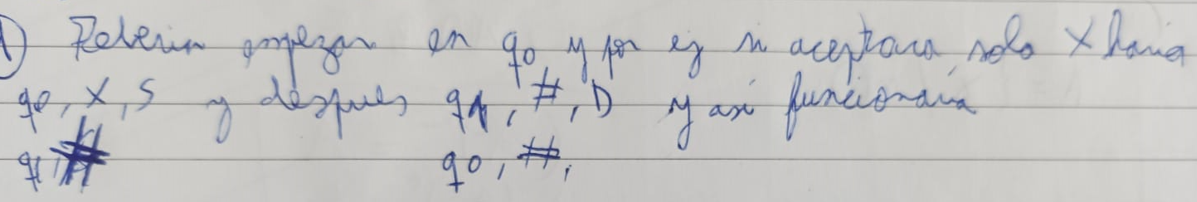 ) Deberia empezar en q0 y por ej si aceptara solo X haria
q0, X, S y despues q1, #, D y asi funcionaria
q1, # q0, #,